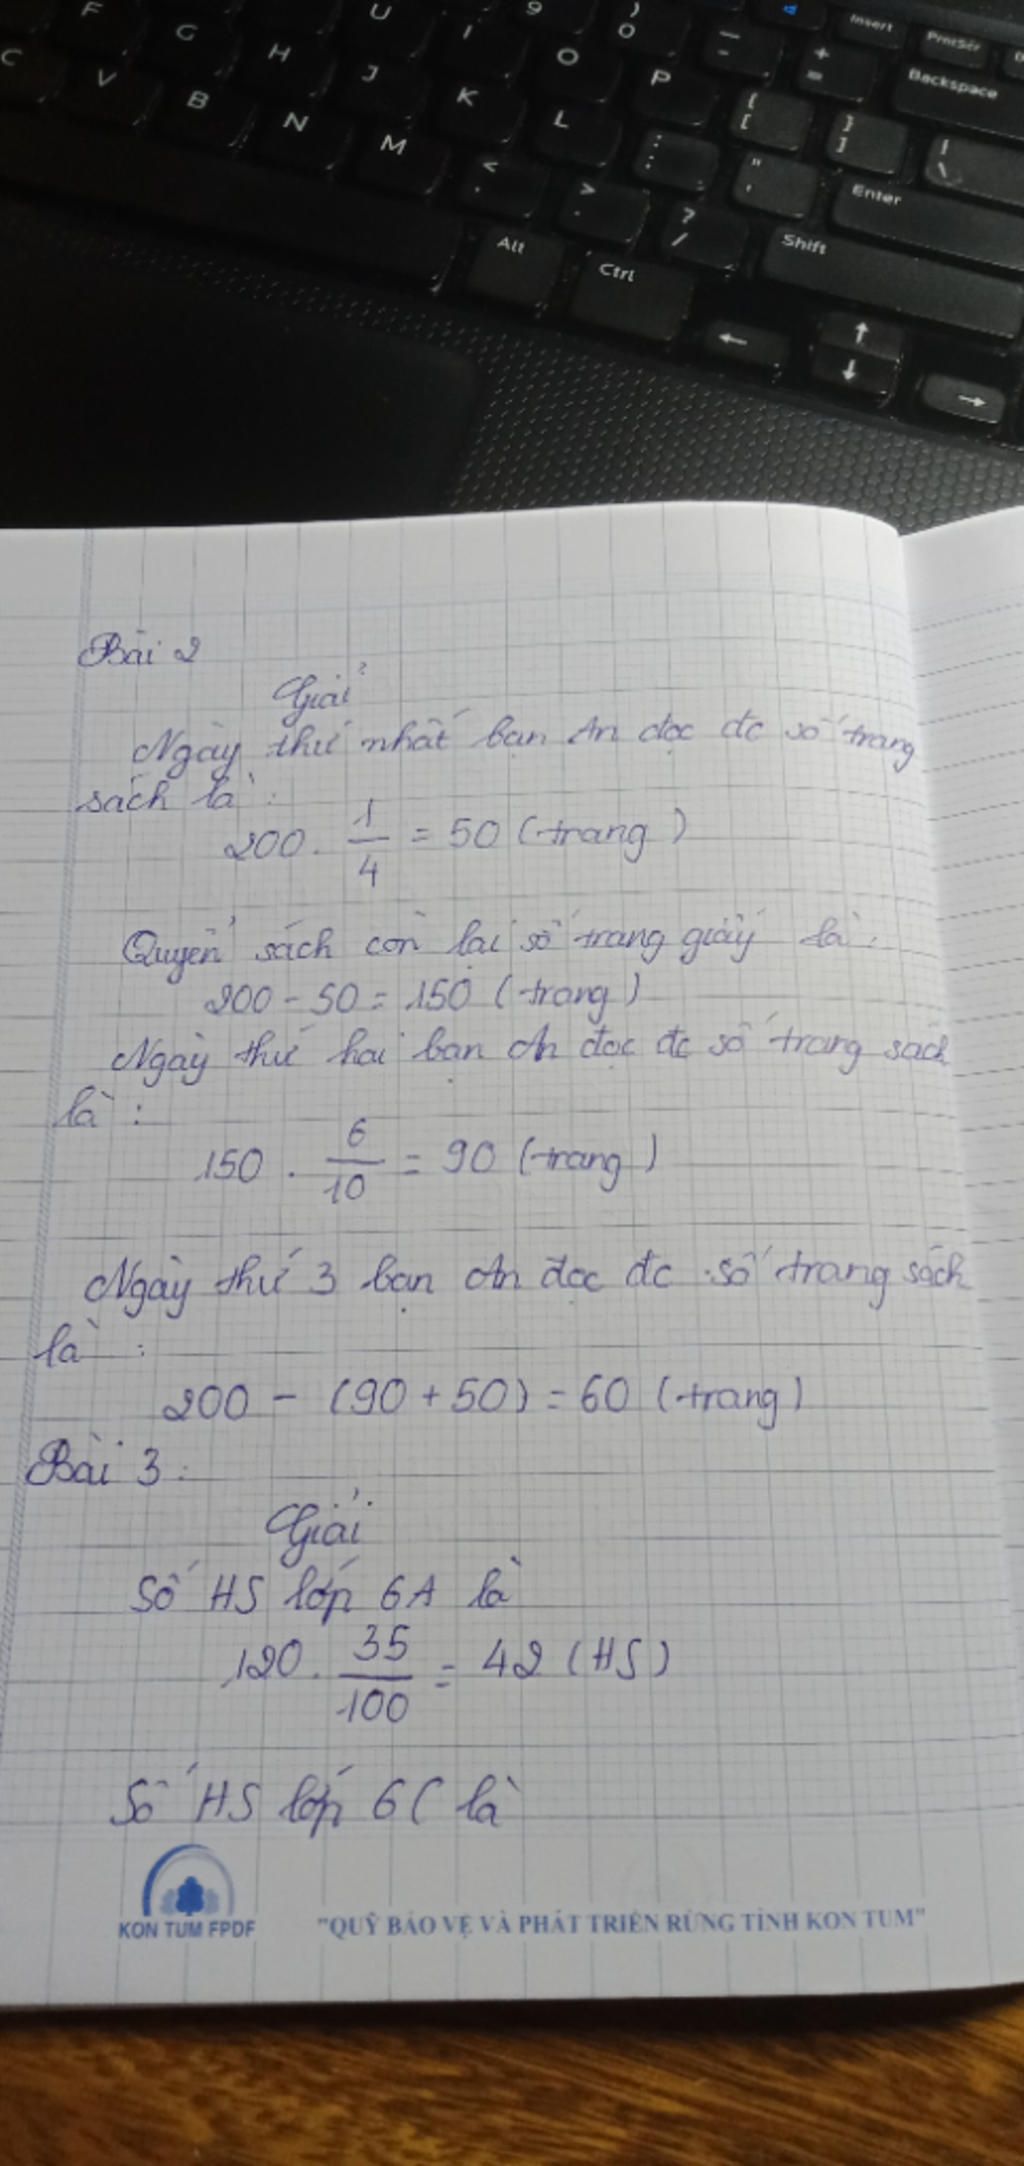 U 9 ) 0 _ - + = Insert PrntScr
F G H I O P { [ } ] Backspace
C V B J K L : ; " ' | \
N M < , > . ? / Enter
Alt Ctrl Shift
← ↑ ↓ →
Bài 2
Giải
Ngày thứ nhất bạn An đọc đc số trang
sách là :
200 . 1/4 = 50 (trang)
Quyển sách còn lại số trang giấy là :
200 - 50 = 150 (trang)
Ngày thứ hai bạn An đọc đc số trang sách
là :
150 . 6/10 = 90 (trang)
Ngày thứ 3 bạn An đọc đc số trang sách
là :
200 - (90 + 50) = 60 (trang)
Bài 3 :
Giải
Số HS lớp 6A là
120 . 35/100 = 42 (HS)
Số HS lớp 6C là
KON TUM FPDF "QUỸ BẢO VỆ VÀ PHÁT TRIỂN RỪNG TỈNH KON TUM"